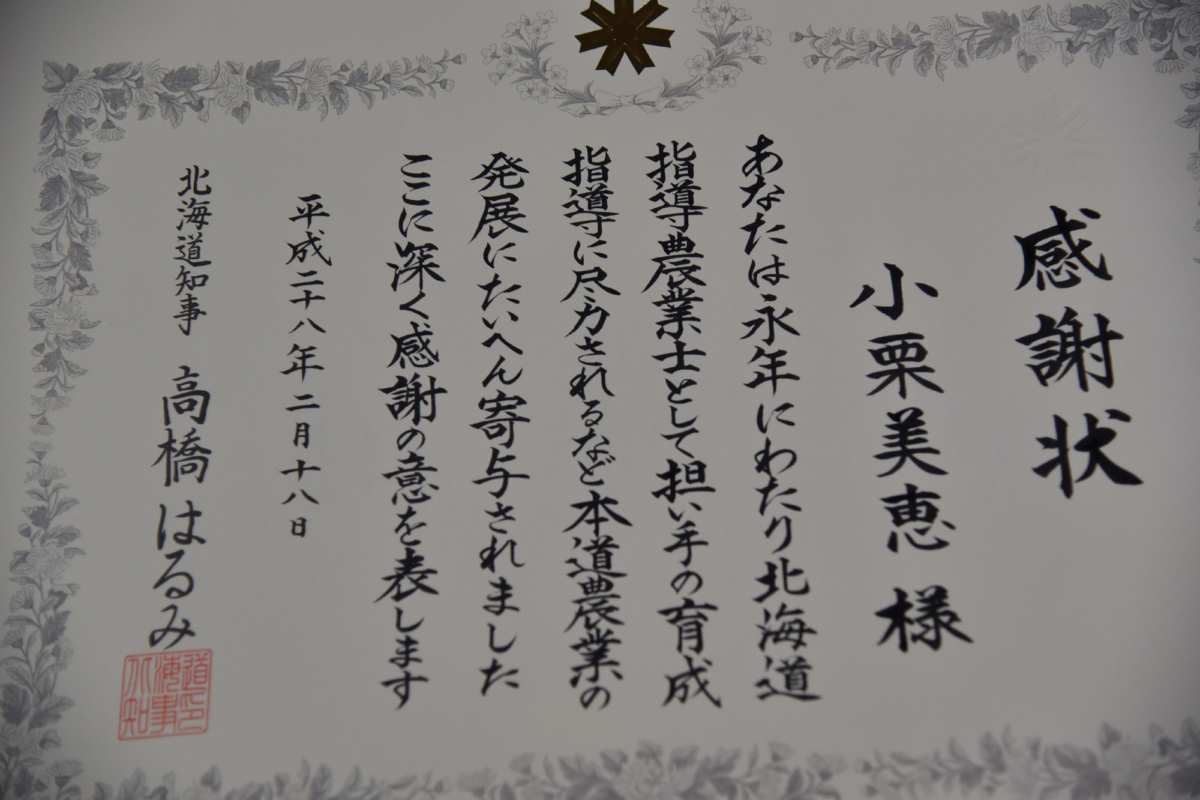 感謝状
小栗美恵様
あなたは永年にわたり北海道
指導農業士として担い手の育成
指導に尽力されるなど本道農業の
発展にたいへん寄与されました
ここに深く感謝の意を表します
平成二十八年二月十八日
北海道知事 高橋はるみ
道印
海事
北知